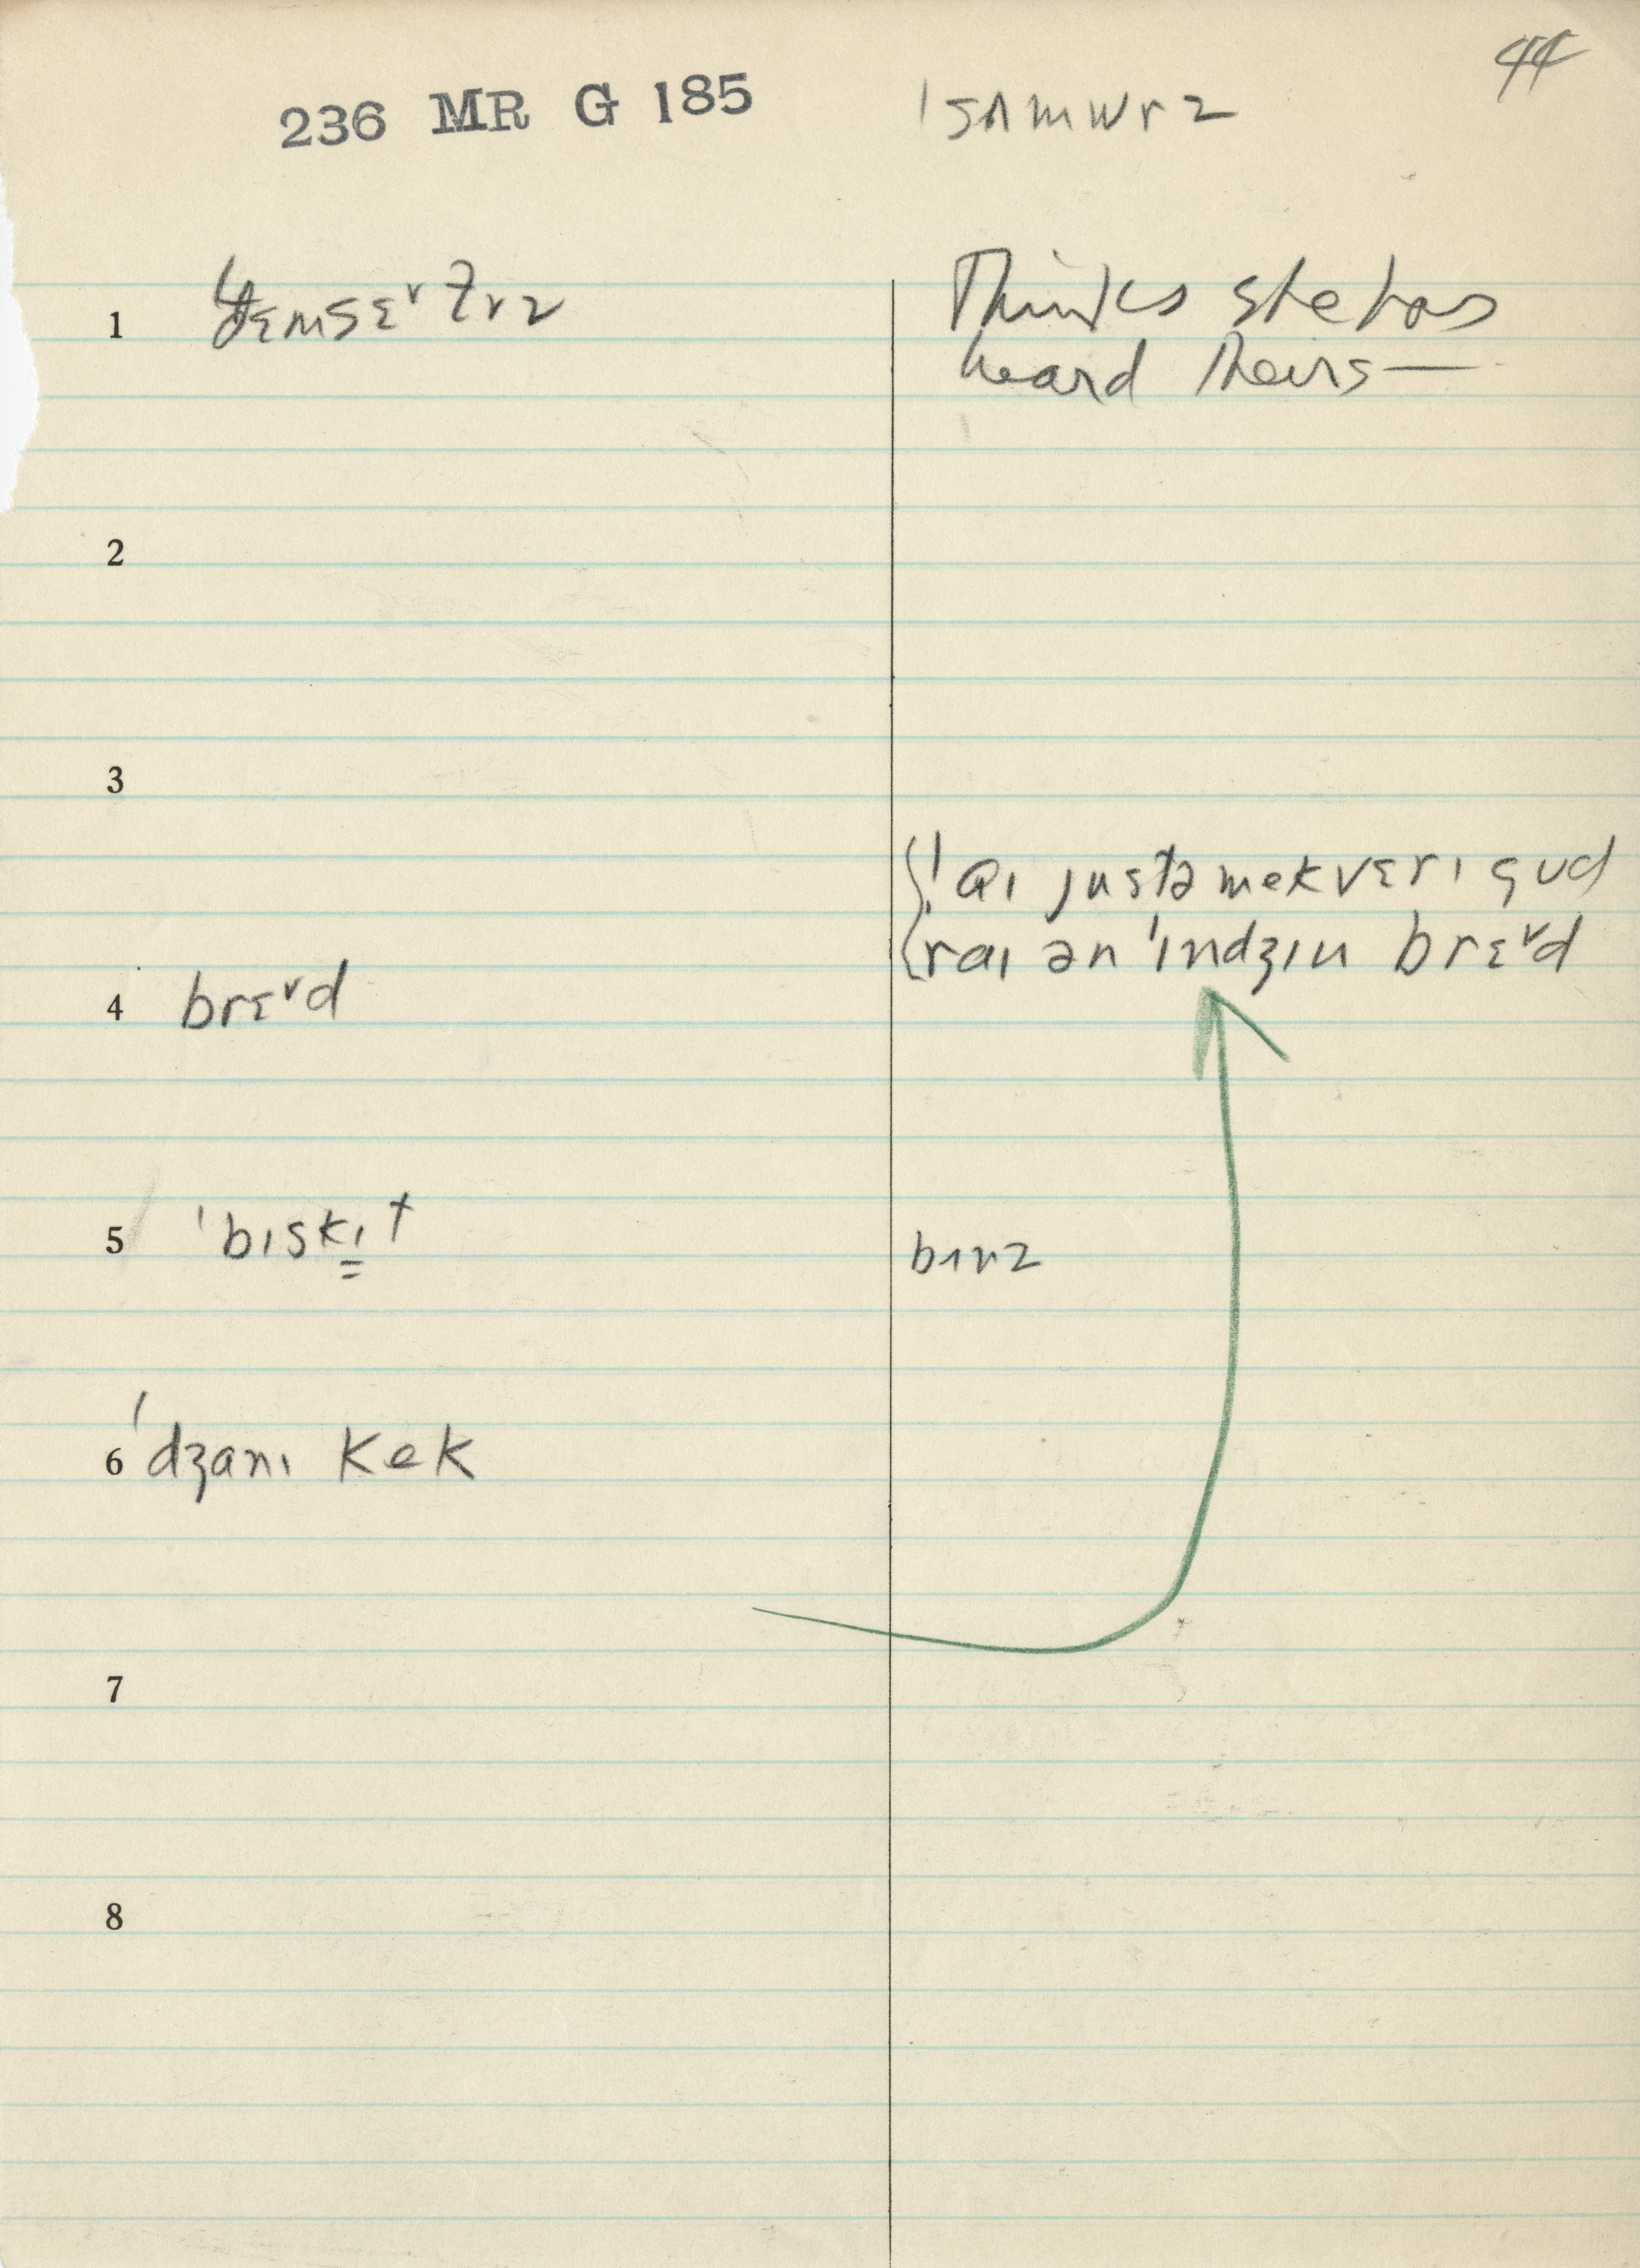 44
236 MR G 185
ˈsʌmwɛrz
Thinks she has
1
heard theirs—
2
3
ˈaɪ justə mek vɛrɪ gud
raɪ ən ˈɪndʒɪn brɛ˅d
4 brɛ˅d
5 ˈbɪskɪ̳t
bɪnz
6 ˈdʒanɪ kek
7
8